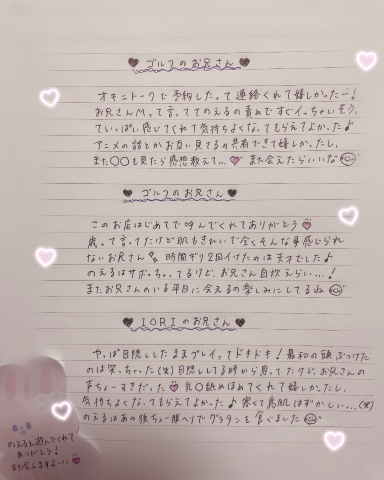 ♥ ゴルフのお兄さん ♥
オキニトークで予約したって連絡くれて嬉しかったー!
お兄さんMって言ってのえるの責めですぐイっちゃいそう。
ていっぱい感じてくれて気持ちよくなってもらえてよかった♪
アニメの話とかお互い見てるの共有できて嬉しかったし、
また〇〇も見たら感想教えて...♥ また会えたらいいな
♥ ゴルフのお兄さん ♥
このお店はじめてで呼んでくれてありがとう♥
歳って言ってたけど肌もきれいで全くそんな事感じられ
ないお兄さん 時間ギリ2回イけたのは天才でした♪
のえるはサボっちゃってるけど、お兄さん自炊えらい...!
またお兄さんのいる平日に会えるの楽しみにしてるね
♥ IORIのお兄さん ♥
やっぱ目隠ししたままプレイってドキドキ!最初の頭ぶつけた
のは笑っちゃった(笑)目隠ししてる時から思ってたけど、お兄さんの
声ちょーすきだった♥ 乳〇舐めほめてくれて嬉しかったし、
気持ちよくなってもらえてよかった♪ 寒くて鳥肌はずかしい...(笑)
のえるはあの後ちょー腹ヘリでグラタンを食べました
のえると遊んでくれて
ありがとう!
また会えますよーに♥